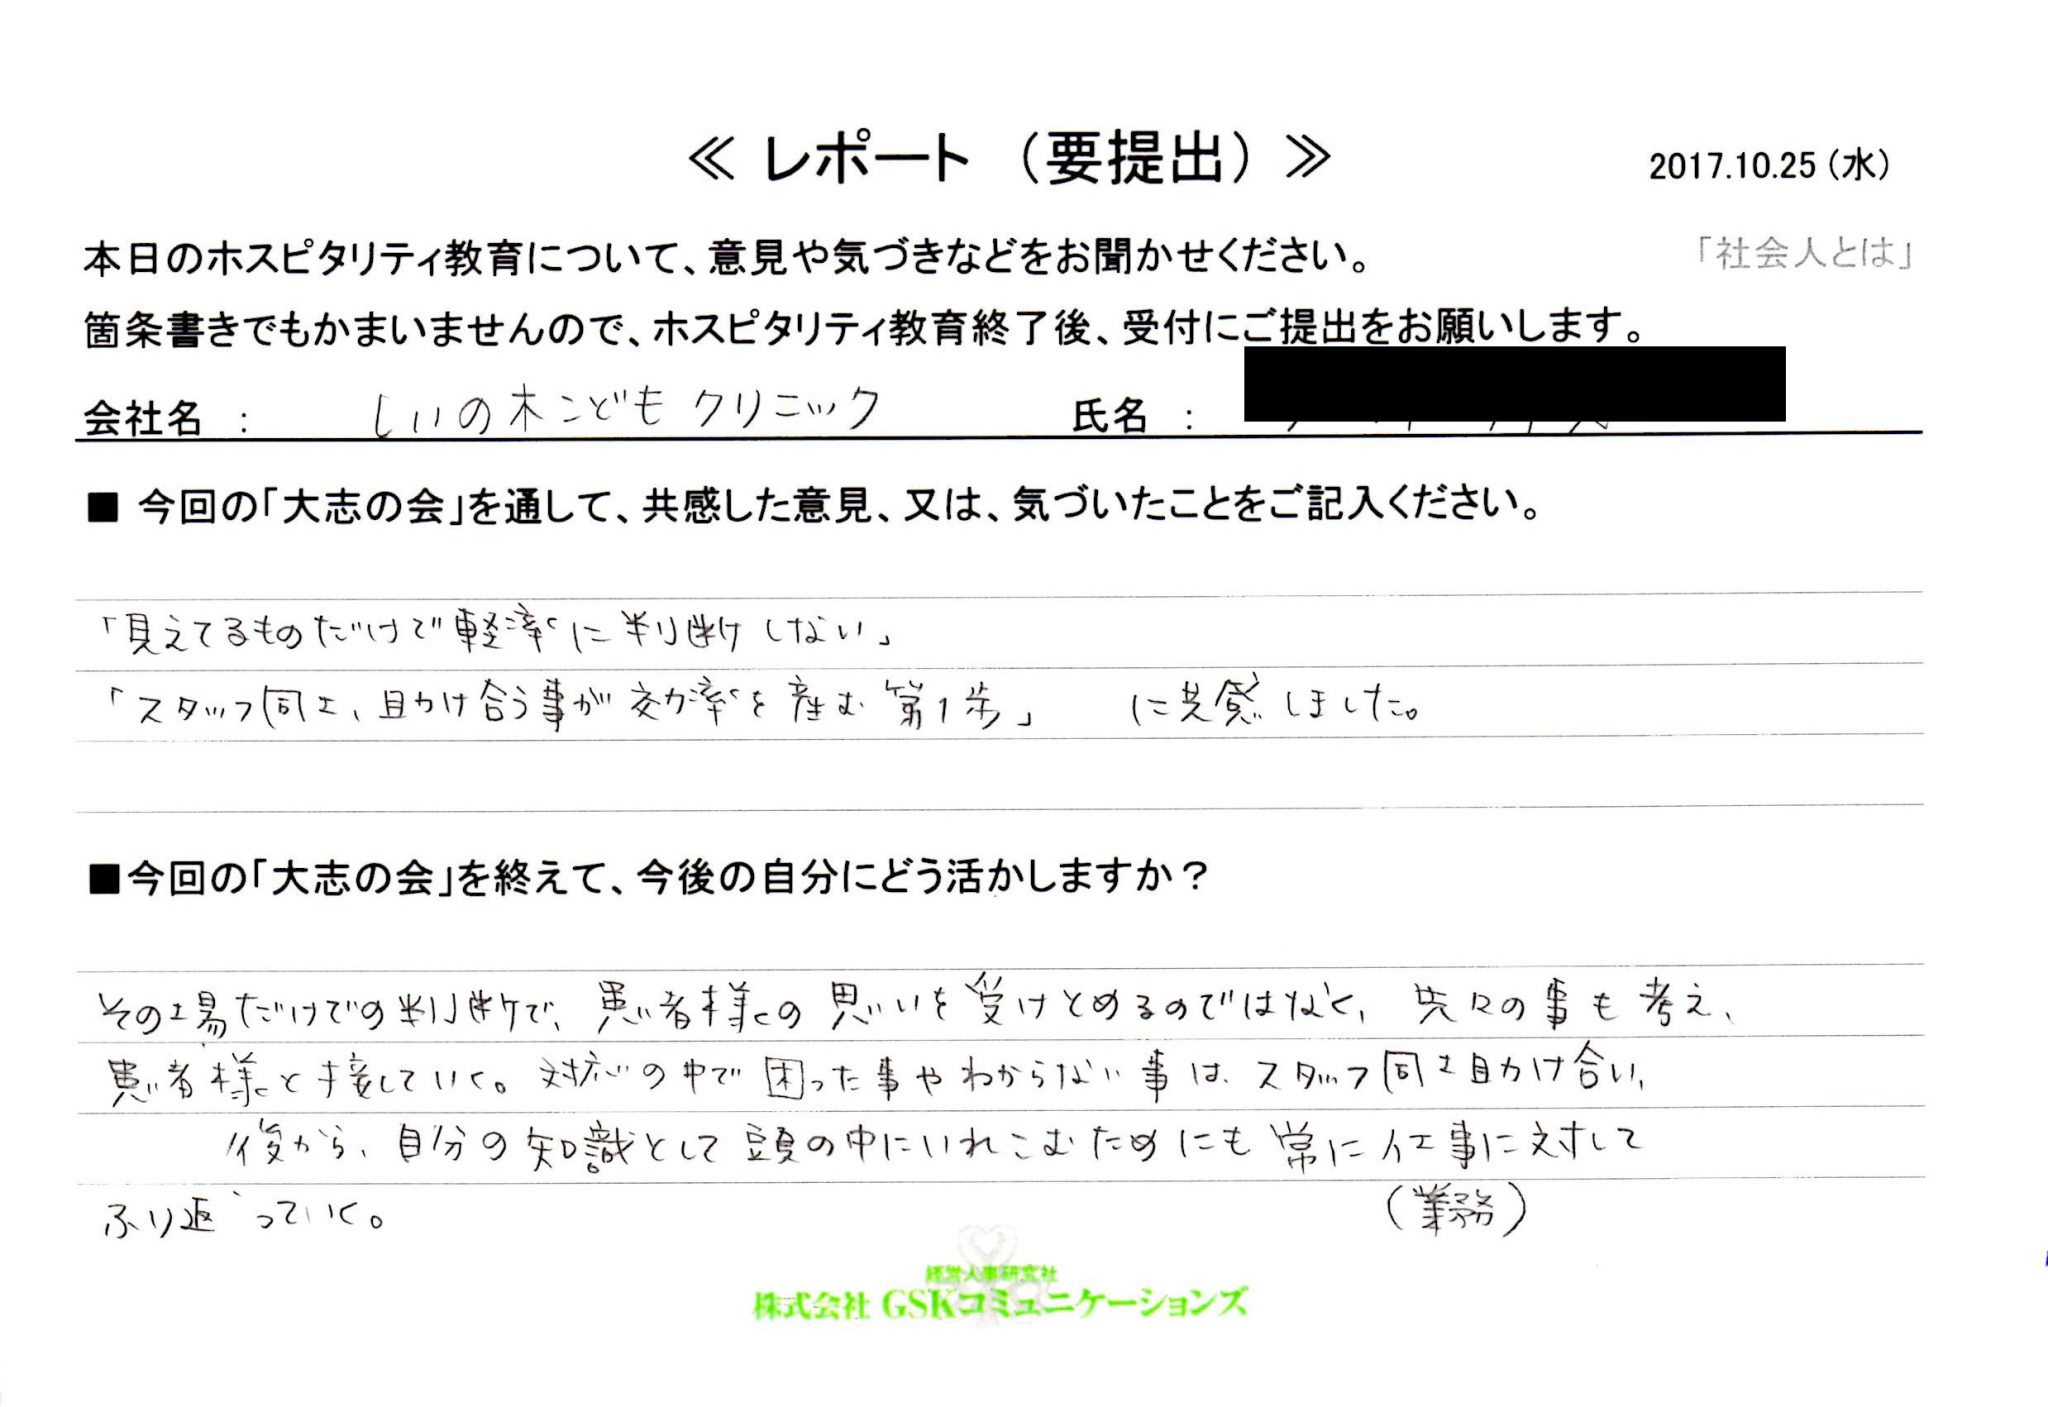 ≪ レポート （要提出） ≫
2017.10.25（水）
本日のホスピタリティ教育について、意見や気づきなどをお聞かせください。
「社会人とは」
箇条書きでもかまいませんので、ホスピタリティ教育終了後、受付にご提出をお願いします。
会社名 ： しいの木こどもクリニック 氏名 ：
■ 今回の「大志の会」を通して、共感した意見、又は、気づいたことをご記入ください。
「見えてるものだけで軽率に判断しない」
「スタッフ同士、助け合う事が効率を産む第1歩」 に共感しました。
■今回の「大志の会」を終えて、今後の自分にどう活かしますか？
その場だけでの判断で、患者様の思いを受けとめるのではなく、先々の事も考え、
患者様と接していく。対応の中で困った事やわからない事は、スタッフ同士助け合い、
後から、自分の知識として頭の中にいれこむためにも常に仕事に対して
ふり返っていく。
（業務）
経営人事研究社
株式会社 GSKコミュニケーションズ